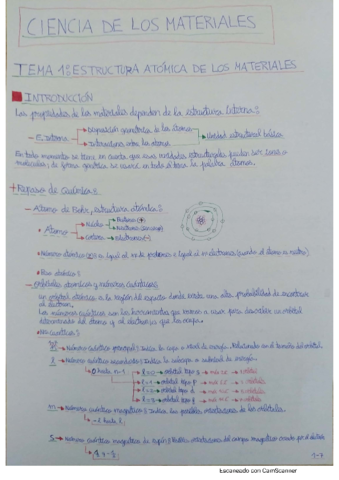 CIENCIA DE LOS MATERIALES
TEMA 1: ESTRUCTURA ATÓMICA DE LOS MATERIALES
INTRODUCCIÓN
Las propiedades de los materiales dependen de la estructura interna:
Disposición geométrica de los átomos
Interacciones entre los átomos
Unidad estructural básica
En todo momento se tiene en cuenta que esas unidades estructurales pueden ser iones o
moléculas, de forma genérica se usará en todo el tema la palabra átomo.
+ Repaso de Química:
- Átomo de Bohr, estructura atómica:
Átomo
Núcleo
Protones (+)
Neutrones
Corteza → electrones (-)
Número atómico es igual al nº de protones e igual al nº electrones (cuando el átomo es neutro)
Peso atómico:
- Orbitales atómicos y números cuánticos:
Un orbital atómico es la región del espacio donde existe una alta probabilidad de encontrar
un electrón.
Los números cuánticos son las herramientas que vamos a usar para describir un orbital
determinado del átomo y al electrón que lo ocupa.
Número cuántico principal: Indica la capa o nivel de energía. Relacionado con el tamaño del orbital.
l → Número cuántico secundario: Indica la subcapa o subnivel de energía.
0 hasta n-1
l=0 → orbital tipo s
l=1 → orbital tipo p
l=2 → orbital tipo d
l=3 → orbital tipo f
m → Número cuántico magnético: Indica las posibles orientaciones de los orbitales.
-l hasta l.
s → Número cuántico magnético de espín: Posibles orientaciones del campo magnético creado por el electrón
Escaneado con CamScanner